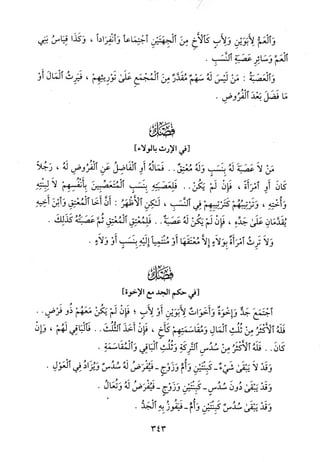 وَٱلْعَمُّ لِأَبَوَيْنِ وَلِأَبٍ كَٱلْأَخِ مِنَ ٱلْجِهَتَيْنِ ٱجْتِمَاعاً وَٱنْفِرَاداً ، وَكَذَا قِيَاسُ بَنِي
ٱلْعَمِّ وَسَائِرِ عَصَبَةِ ٱلنَّسَبِ .
وَٱلْعَصَبَةُ : مَنْ لَيْسَ لَهُ سَهْمٌ مُقَدَّرٌ مِنَ ٱلْمُجْمَعِ عَلَىٰ تَوْرِيثِهِمْ ، فَيَرِثُ ٱلْمَالَ أَوْ
مَا فَضَلَ بَعْدَ ٱلْفُرُوضِ .
فَصْلٌ
[في الإرث بالولاء]
مَنْ لاَ عَصَبَةَ لَهُ بِنَسَبٍ وَلَهُ مُعْتِقٌ . . فَمَالُهُ أَوِ ٱلْفَاضِلُ عَنِ ٱلْفُرُوضِ لَهُ ، رَجُلاً
كَانَ أَوِ ٱمْرَأَةً ، فَإِنْ لَمْ يَكُنْ . . فَلِعَصَبَتِهِ بِنَسَبٍ ٱلْمُتَعَصِّبِينَ بِأَنْفُسِهِمْ لاَ لِبِنْتِهِ
وَأُخْتِهِ ، وَتَرْتِيبُهُمْ كَتَرْتِيبِهِمْ فِي ٱلنَّسَبِ ، لَكِنِ ٱلْأَظْهَرُ : أَنَّ أَخَا ٱلْمُعْتِقِ وَٱبْنَ أَخِيهِ
يُقَدَّمَانِ عَلَىٰ جَدِّهِ ، فَإِنْ لَمْ يَكُنْ لَهُ عَصَبَةٌ . . فَلِمُعْتِقِ ٱلْمُعْتِقِ ثُمَّ عَصَبَتُهُ كَذَلِكَ .
وَلاَ تَرِثُ ٱمْرَأَةٌ بِوَلاَءٍ إِلاَّ مُعْتَقَهَا أَوْ مُنْتَمِياً إِلَيْهِ بِنَسَبٍ أَوْ وَلاَءٍ .
فَصْلٌ
[في حكم الجد مع الإخوة]
ٱجْتَمَعَ جَدٌّ وَإِخْوَةٌ وَأَخَوَاتٌ لِأَبَوَيْنِ أَوْ لِأَبٍ ؛ فَإِنْ لَمْ يَكُنْ مَعَهُمْ ذُو فَرْضٍ . .
فَلَهُ ٱلْأَكْثَرُ مِنْ ثُلُثِ ٱلْمَالِ وَمُقَاسَمَتِهِمْ كَأَخٍ ، فَإِنْ أَخَذَ ٱلثُّلُثَ . . فَٱلْبَاقِي لَهُمْ ، وَإِنْ
كَانَ . . فَلَهُ ٱلْأَكْثَرُ مِنْ سُدُسِ ٱلتَّرِكَةِ وَثُلُثِ ٱلْبَاقِي وَٱلْمُقَاسَمَةِ .
وَقَدْ لاَ يَبْقَىٰ شَيْءٌ - كَبِنْتَيْنِ وَأُمٍّ وَزَوْجٍ - فَيُفْرَضُ لَهُ سُدُسٌ وَيُزَادُ فِي ٱلْعَوْلِ .
وَقَدْ يَبْقَىٰ دُونَ سُدُسٍ - كَبِنْتَيْنِ وَزَوْجٍ - فَيُفْرَضُ لَهُ وَتُعَالُ .
وَقَدْ يَبْقَىٰ سُدُسٌ كَبِنْتَيْنِ وَأُمٍّ - فَيَفُوزُ بِهِ ٱلْجَدُّ .
٣٤٣